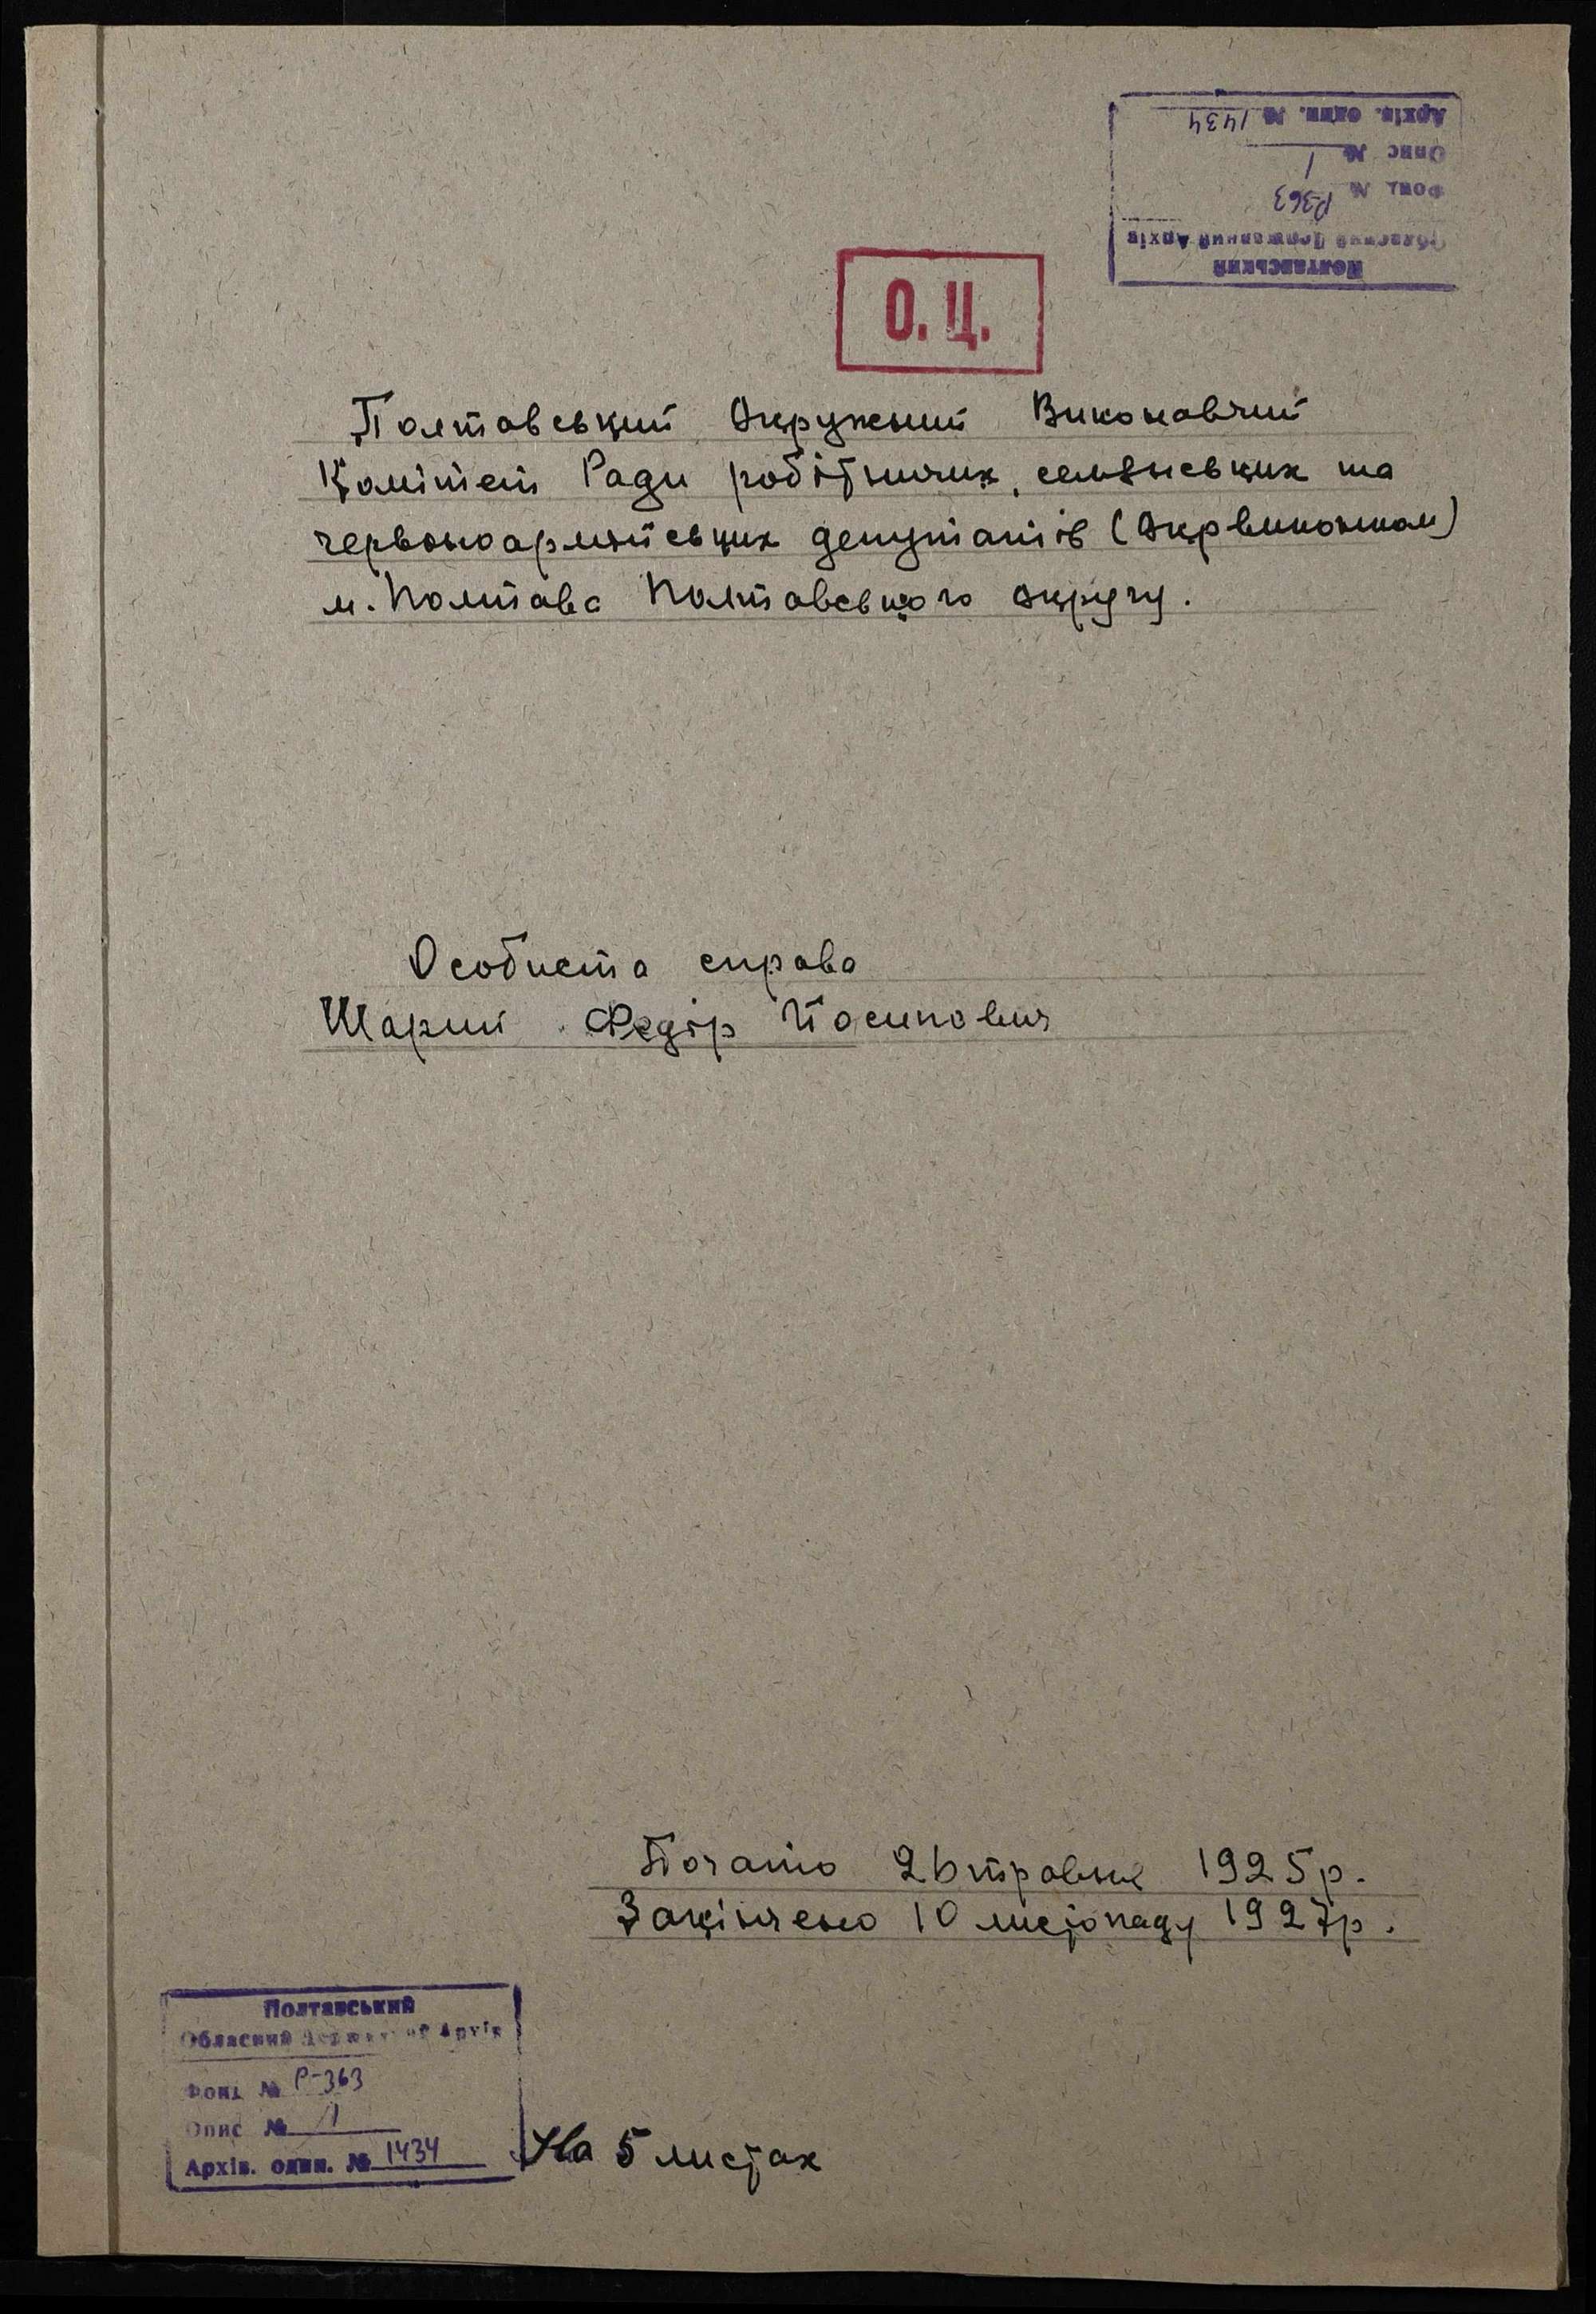 Полтавський
Обласний Державний Архів
Фонд № Р363
Опис № 1
Архів. один. № 1434
О. Ц.
Полтавський Окружний Виконавчий
Комітет Ради робітничих, селянських та
червоноармійських депутатів (Окрвиконком)
м. Полтава Полтавського округу.
Особиста справа
Шарий Федір Йосипович
Почато 26 травня 1925 р.
Закінчено 10 листопаду 1927 р.
Полтавський
Обласний Державний Архів
Фонд № Р-363
Опис № 1
Архів. один. № 1434
На 5 листах